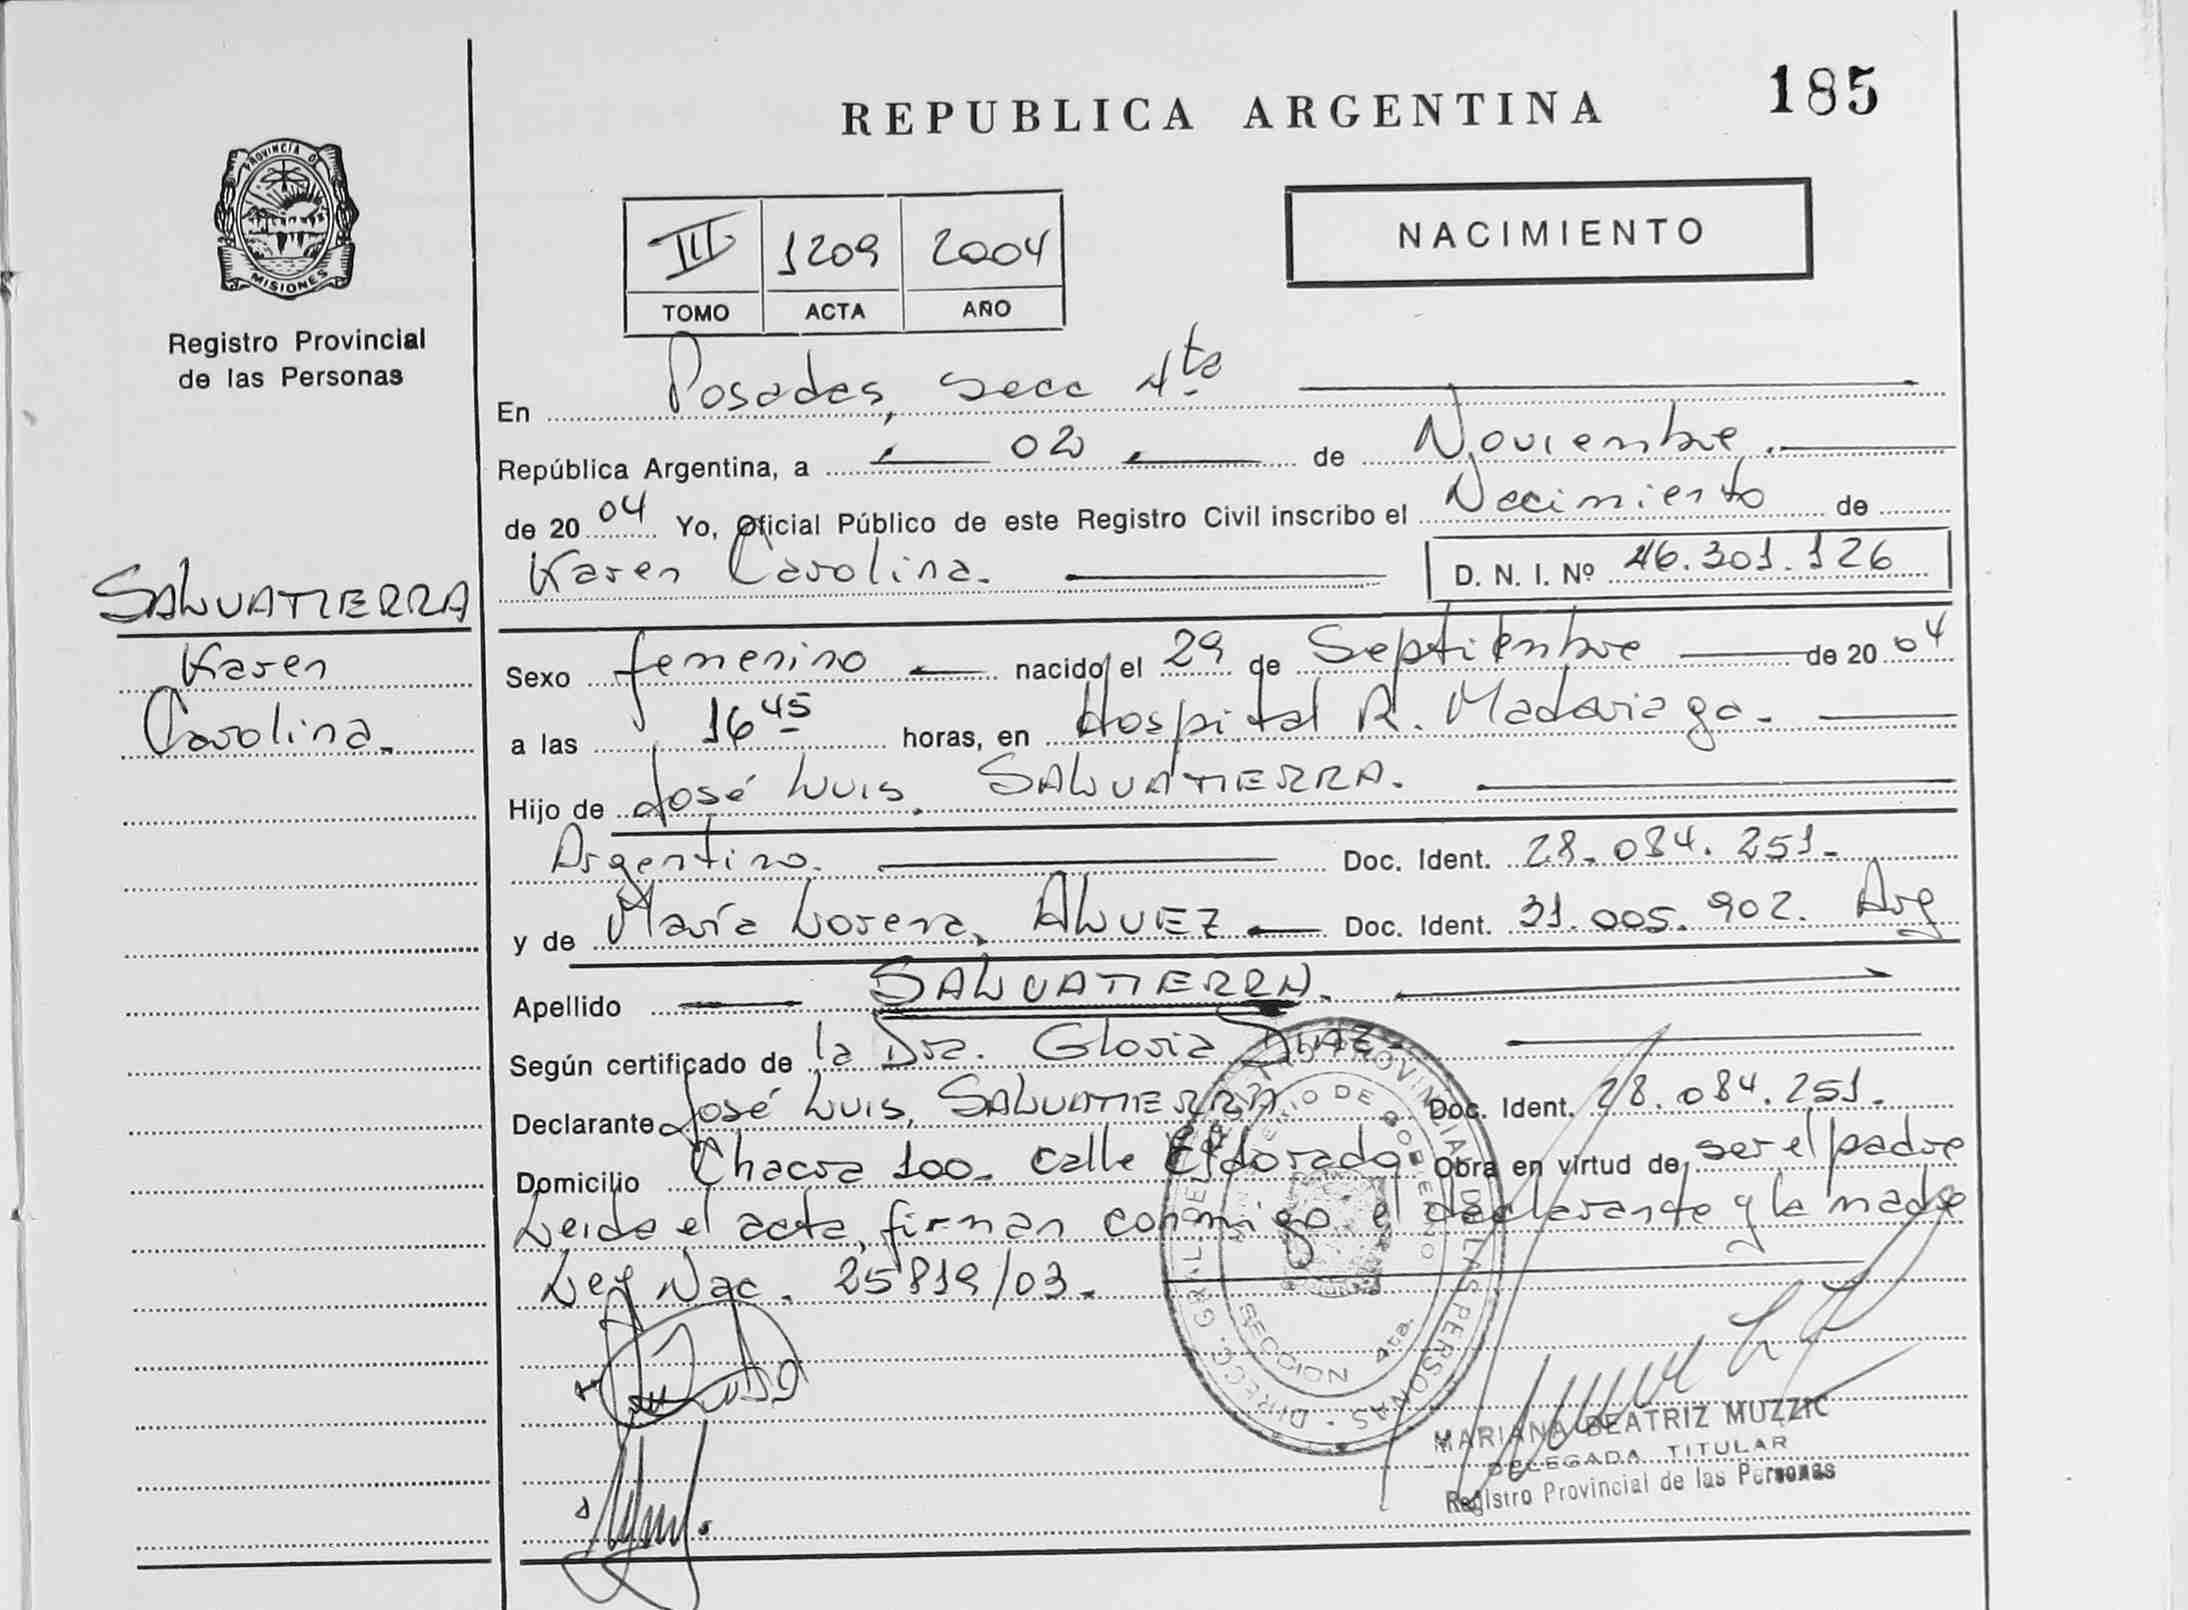 REPUBLICA ARGENTINA
185
PROVINCIA DE
MISIONES
Registro Provincial
de las Personas
III 1209 2004
TOMO ACTA AÑO
NACIMIENTO
En Posadas, secc 4ta
República Argentina, a 02 de Noviembre.
de 20 04 Yo, Oficial Público de este Registro Civil inscribo el Nacimiento de
Karen Carolina. D. N. I. Nº 46.301.126
SALVATIERRA
Karen
Carolina.
Sexo femenino nacido el 29 de Septiembre de 20 04
a las 16 45 horas, en Hospital R. Madariaga.
Hijo de José Luis, SALVATIERRA.
Argentino. Doc. Ident. 28.084.251.
y de María Lorena, ALVEZ Doc. Ident. 31.005.902. Arg
Apellido SALVATIERRA.
Según certificado de la Dra. Gloria DIAZ
Declarante José Luis, SALVATIERRA Doc. Ident. 28.084.251.
Domicilio Chacra 100. calle Eldorado. Obra en virtud de ser el padre
Leida el acta, firman conmigo el declarante y la madre
Ley Nac. 25819/03.
DIRECC. GRAL. DEL REGISTRO PROVINCIAL DE LAS PERSONAS
MINISTERIO DE GOBIERNO
SECCION 4ta.
MARIANA BEATRIZ MUZZIC
DELEGADA TITULAR
Registro Provincial de las Personas